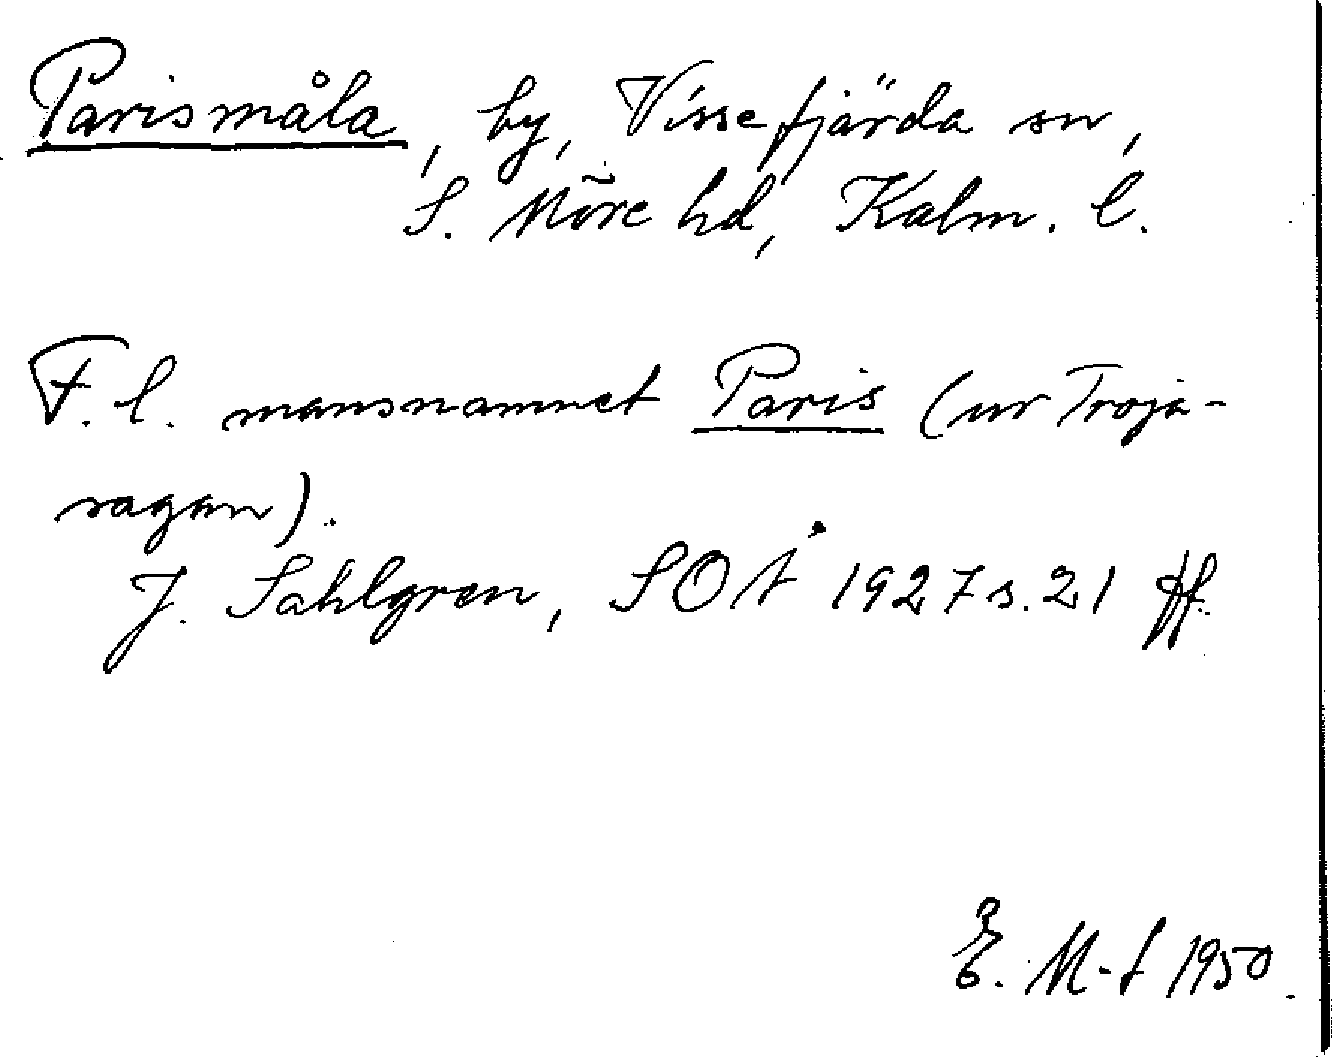 Parismåla, by, Vissefjärda sn,
S. Möre hd, Kalm. l.
F. l. mansnamnet Paris (ur Troja-
sagan).
J. Sahlgren, SOÅ 1927 s. 21 ff.
E. M-f 1950.